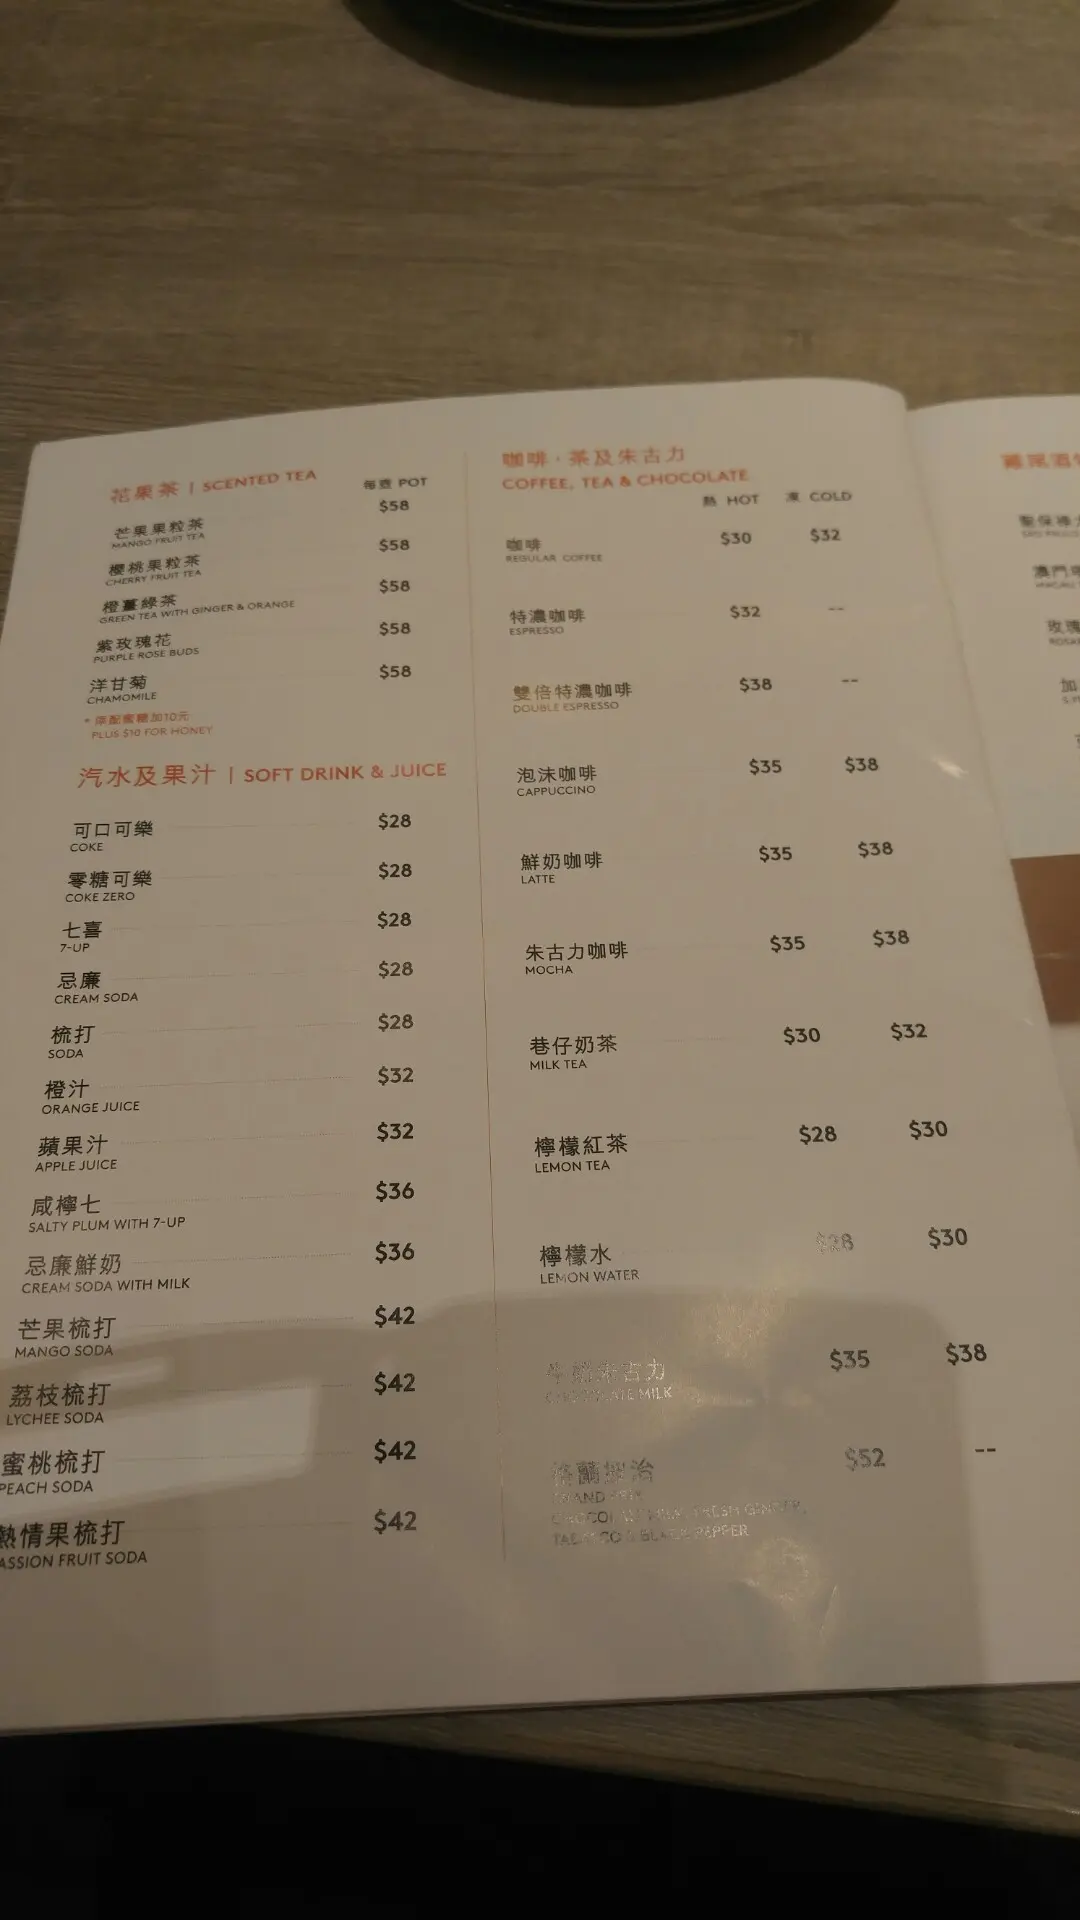 花果茶 | SCENTED TEA
每壺 POT
芒果果粒茶 $58
MANGO FRUIT TEA
櫻桃果粒茶 $58
CHERRY FRUIT TEA
橙薑綠茶 $58
GREEN TEA WITH GINGER & ORANGE
紫玫瑰花 $58
PURPLE ROSE BUDS
洋甘菊 $58
CHAMOMILE
加10元
PLUS $10 FOR HONEY
汽水及果汁 | SOFT DRINK & JUICE
可口可樂 $28
COKE
零糖可樂 $28
COKE ZERO
七喜 $28
7-UP
忌廉 $28
CREAM SODA
梳打 $28
SODA
橙汁 $32
ORANGE JUICE
蘋果汁 $32
APPLE JUICE
咸檸七 $36
SALTY PLUM WITH 7-UP
忌廉鮮奶 $36
CREAM SODA WITH MILK
芒果梳打 $42
MANGO SODA
荔枝梳打 $42
LYCHEE SODA
蜜桃梳打 $42
PEACH SODA
熱情果梳打 $42
ASSION FRUIT SODA
咖啡·茶及朱古力
COFFEE, TEA & CHOCOLATE
熱 HOT 凍 COLD
咖啡 $30 $32
REGULAR COFFEE
特濃咖啡 $32 --
ESPRESSO
雙倍特濃咖啡 $38 --
DOUBLE ESPRESSO
泡沫咖啡 $35 $38
CAPPUCCINO
鮮奶咖啡 $35 $38
LATTE
朱古力咖啡 $35 $38
MOCHA
巷仔奶茶 $30 $32
MILK TEA
檸檬紅茶 $28 $30
LEMON TEA
檸檬水 $28 $30
LEMON WATER
牛奶朱古力 $35 $38
CHOCOLATE MILK
$52 --
FRESH GINGER,
BLACK PEPPER
玫瑰
加